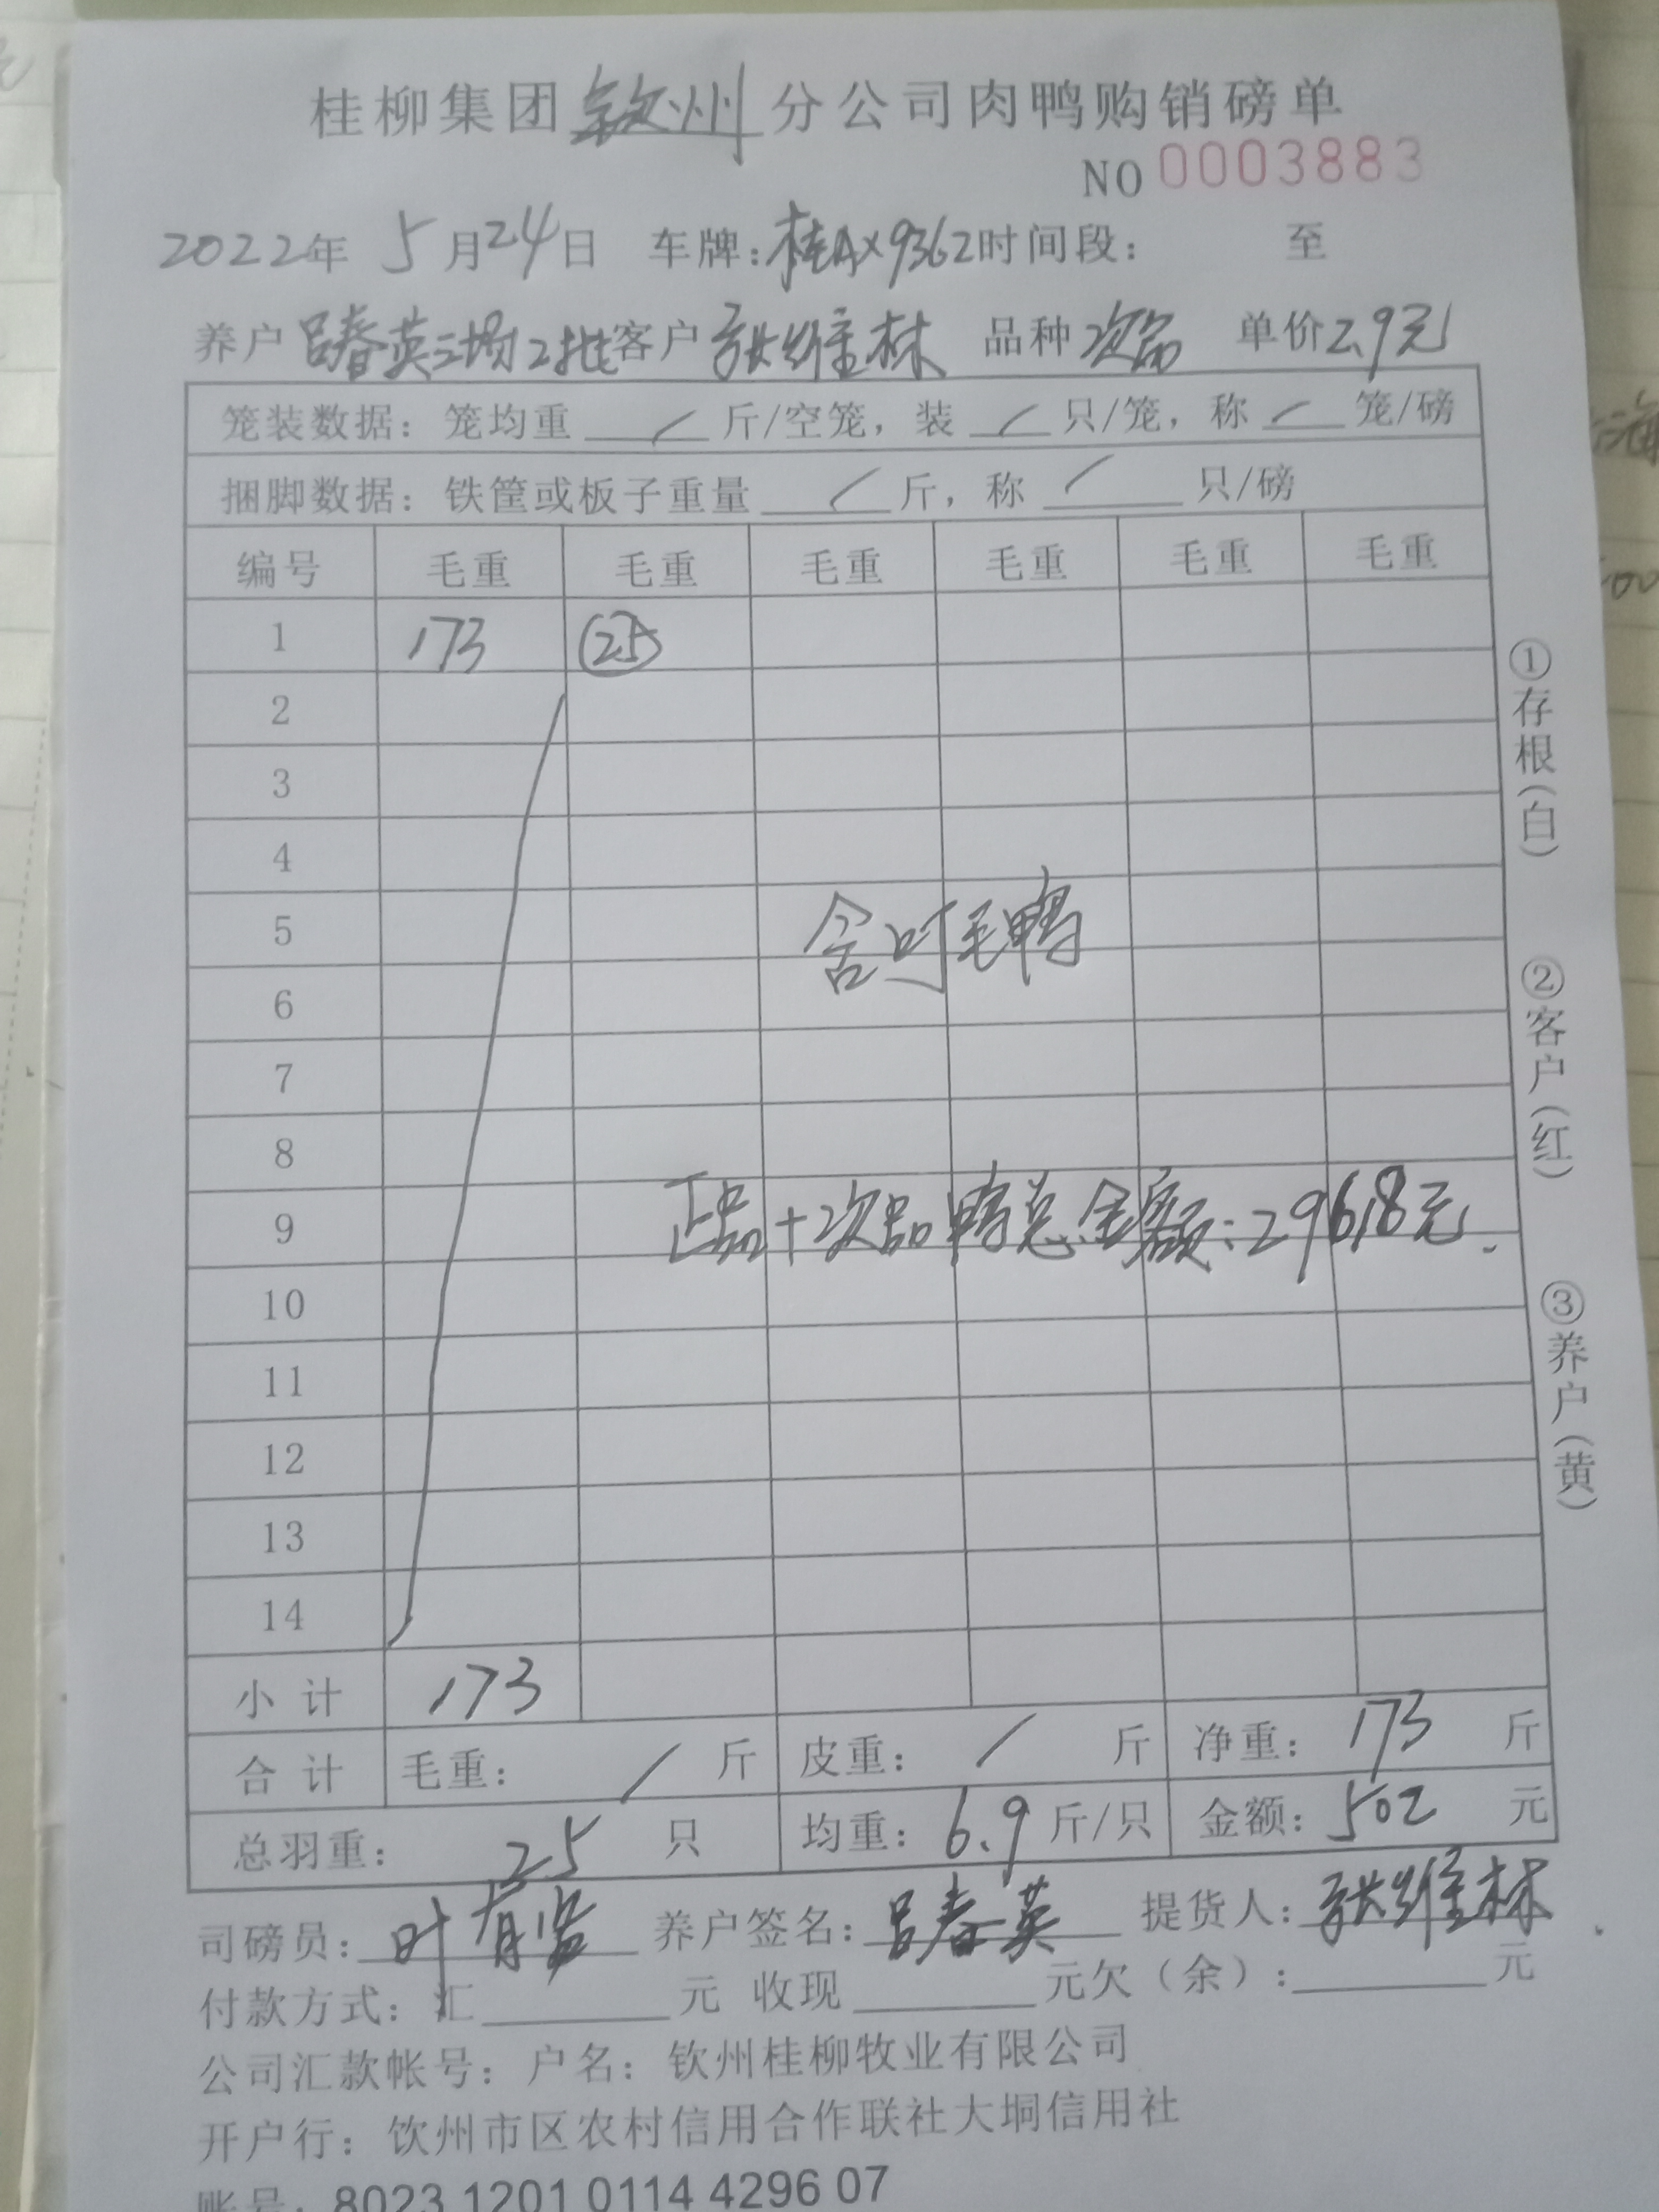 桂柳集团钦州分公司肉鸭购销磅单
NO 0003883
2022年 5月24日 车牌:桂AX9362时间段: 至
养户吕春英三场2批客户张维林 品种次品 单价2.9元
笼装数据: 笼均重 / 斤/空笼, 装 / 只/笼, 称 / 笼/磅
捆脚数据: 铁筐或板子重量 / 斤, 称 / 只/磅
编号 毛重 毛重 毛重 毛重 毛重 毛重
1 173 25
2
3
4
5
毛鸭
6
7
8
9
正品+次品鸭总金额:29618元.
10
11
12
13
14
小计 173
合计 毛重: / 斤 皮重: / 斤 净重: 173 斤
总羽重: 25 只 均重: 6.9 斤/只 金额: 502 元
司磅员: 叶有 养户签名: 吕春英 提货人: 张维林
付款方式: 汇 元 收现 元欠(余): 元
公司汇款帐号: 户名: 钦州桂柳牧业有限公司
开户行: 钦州市区农村信用合作联社大垌信用社
账号: 8023 1201 0114 4296 07
①存根(白)
②客户(红)
③养户(黄)